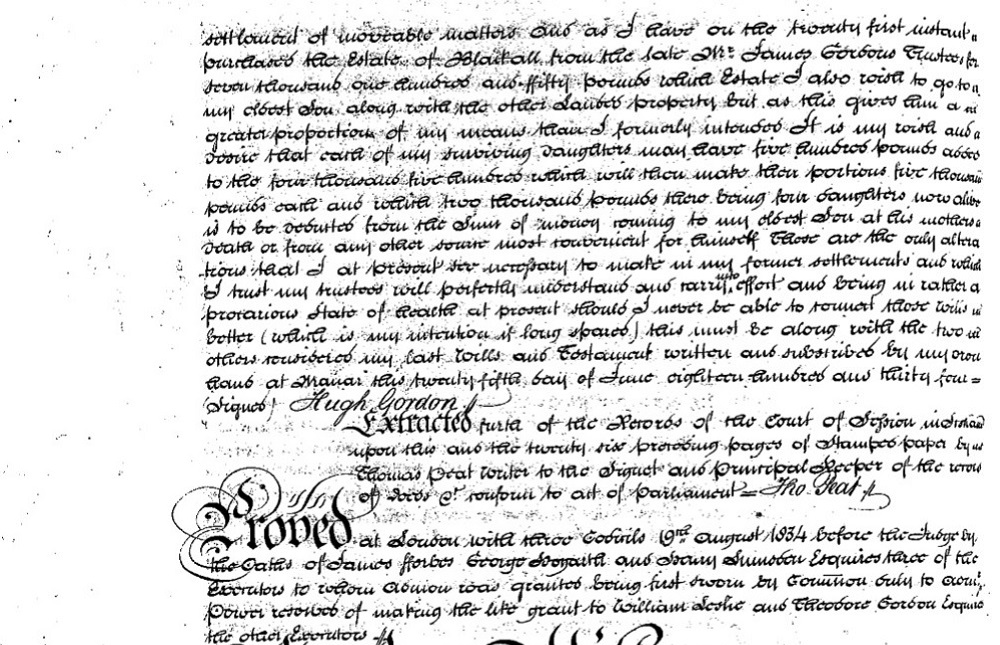 settlement of moveable matters and as I have on the twenty first instant
purchased the Estate of Blackall from the late Mr. James Gordons Trustees for
seven thousand one hundred and ffifty pounds which Estate I also wish to go to
my eldest Son along with the other Landed property but as this gives him a
greater proportion of my means than I formerly intended It is my wish and
desire that each of my surviving daughters may have five hundred pounds added
to the four thousand five hundred which will then make their portions five thousand
pounds each and which two thousand pounds there being four daughters now alive
is to be deducted from the Sum of money coming to my eldest Son at his mothers
death or from any other source most convenient for himself These are the only altera
tions that I at present see necessary to make in my former settlements and which
I trust my trustees will perfectly understand and carry into effect and being in rather a
precarious State of health at present should I never be able to connect these Wills
better (which is my intention if long spared) this must be along with the two
others considered my last Wills and Testament written and subscribed by my own
hand at Manar this twenty fifth day of June eighteen hundred and thirty four =
(Signed) Hugh Gordon
Extracted furth of the Records of the Court of Session in Scotland
upon this and the twenty six preceding pages of Stamped paper by
Thomas Peat Writer to the Signet and Principal Keeper of the record
of deeds &c. conform to act of Parliament = Tho. Peat
Proved at London with three Codicils 19th August 1834 before the Judge by
the Oaths of James fforbes George Hogarth and Henry Lumsden Esquires three of the
Executors to whom Admon was granted being first sworn by Common duly to Admr.
Power reserved of making the like grant to William Leslie and Theodore Gordon Esquires
the other Executors